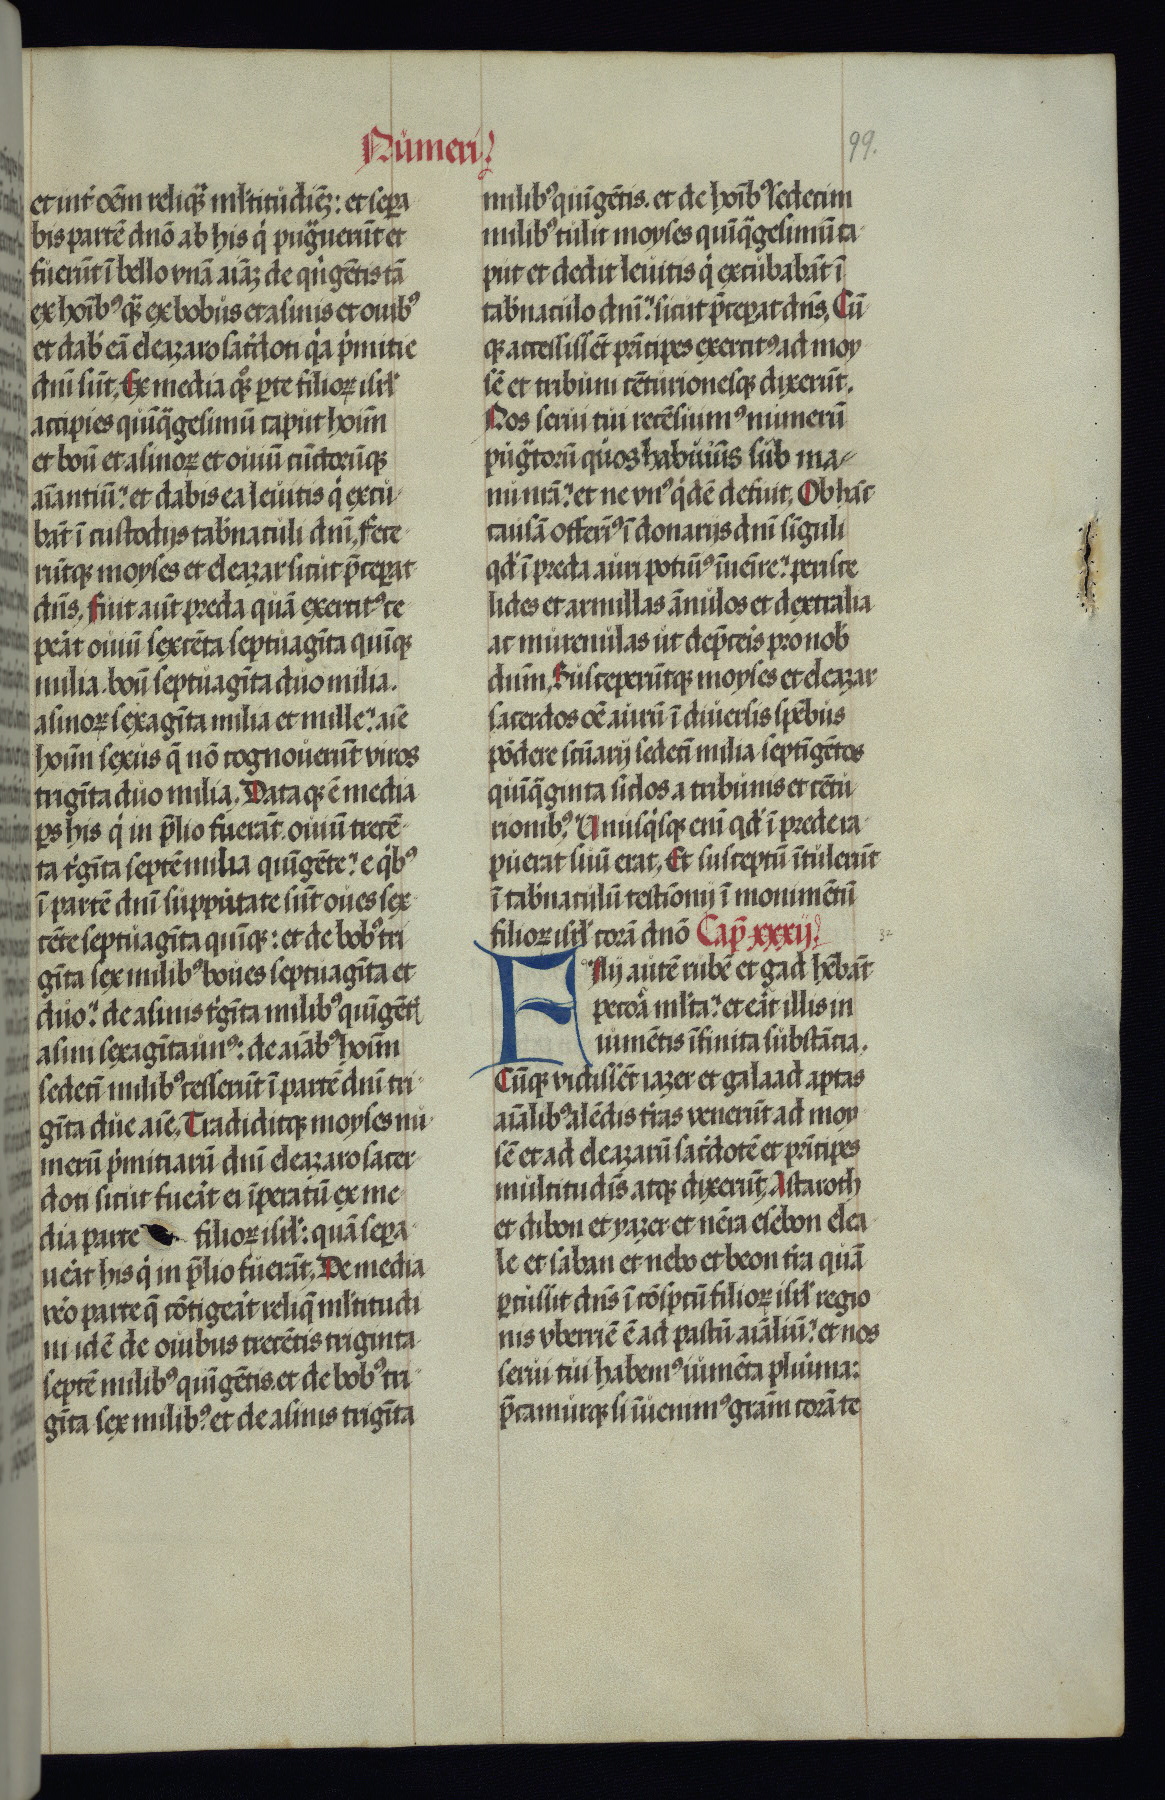 Numeri
99.
et int̉ oēm reliq̈ȝ mĺtitudīeȝ: et sepa
bis partē dnō ab his q̇ pug̈uerūt et
fuerūt ī bello vnā aīaȝ de qi̇gētis tā
ex hoībꝰ q̈ꝫ ex bobus et asinis et ouibꝰ
et dab̉ eā eleazaro sac̉doti q̇a p̉mitie
dnī sūt. Ex media qꝫ ꝑte filioꝝ isrl̉
accipies quīq̈gesimū caput hoīm
et boū et asinoꝝ et oiuū cūctorūqꝫ
aīantiū: et dabis ea leuitis q̇ excu
bāt ī custodijs tab̉naculi dnī. fece
rūtqꝫ moyses et eleazar sicut p̄cepat
dn̄s. fuit aūt preda quā exercitꝰ ce
peāt oiuū sexcēta septuagīta quīqꝫ
milia. boū septuagīta duo milia.
asinoꝝ sexagīta milia et mille: aīe
hoīm sexus q̄ nō cognouerūt viros
trigīta duo milia. Dataqꝫ ē media
ps his q̇ in p̄lio fuerāt. oiuū trecē
ta t̉gīta septē milia quīgēte: e q̇bꝰ
ī partē dnī supputate sūt oues sex
cēte septuagīta quīqꝫ: et de bobꝰ tri
gīta sex milibꝰ boues septuagīta et
duo: de asinis t̉gīta milibꝰ quīgēt̉
asini sexagīta unꝰ: de aīabꝰ hoīm
sedecī milibꝰ cesserūt ī partē dnī tri
gīta due aīe. Tradiditqꝫ moyses nu
merū p̉mitiarū dnī eleazaro sacer
doti sicut fueāt ei īperatū ex me
dia parte filioꝝ isrl̉: quā sepa
ueāt his q̇ in p̄lio fuerāt. De media
veo parte q̄ cōtigeāt reliq̄ mĺtitudi
ni idē de ouibus trecētis triginta
septē milibꝰ quīgētis. et de bobꝰ tri
gīta sex milibꝰ: et de asinis trigīta
milibꝰ quīgētis. et de hoībꝰ sedecim
milibꝰ tulit moyses quīq̈gesimū ca
put et dedit leuitis q̇ excubabāt ī
tab̉naculo dnī: sicut p̄cepat dn̄s. Cū
qꝫ accessissēt prīcipes exercitꝰ ad moy
sē et tribuni cēturionesqꝫ dixerūt.
Nos serui tui recēsiumꝰ numerū
pug̈torū quos habuīꝰ sub ma
nu nrā: et ne vnꝰ q̇dē defuit. Ob hāc
causā offerīꝰ ī donarijs dnī sīguli
qd̉ ī preda auri potuīꝰ īuēire: perisce
lides et armillas ānulos et dextralia
ac murenulas ut dep̄ceīs pro nob̉
dnm. Susceperūtqꝫ moyses et eleazar
sacerdos oē aurū ī diuersis spēbus
pōdere scūarij sedecī milia septīgētos
quīq̈ginta siclos a tribunis et cētu
rionibꝰ. Vnusq̇sqꝫ enī qd̉ ī preda ra
puerat suū erat. Et susceptū ītulerūt
ī tab̉naculū testīonij ī monumētū
filioꝝ isrl̉ corā dnō Cap̄ xxxij
32
Filij autē rubē et gad hēbāt
pecoā mĺta: et eāt illis in
iumētis īfinita substācia.
Cūqꝫ vidissēt iazer et galaad aptas
aīalibꝰ alēdis t̉ras venerūt ad moy
sē et ad eleazarū sac̉dotē et prīcipes
multitudīs atqꝫ dixerūt. Astaroth
et dibon et yazer et nēra esebon elea
le et saban et nebo et beon t̉ra quā
ꝑcussit dn̄s ī cōsp̄ctū filioꝝ isrl̉ regio
nis vberrīe ē ad pastū aīaliū: et nos
serui tui habemꝰ iumēta plurima:
p̄camurqꝫ si īuenimꝰ grām corā te